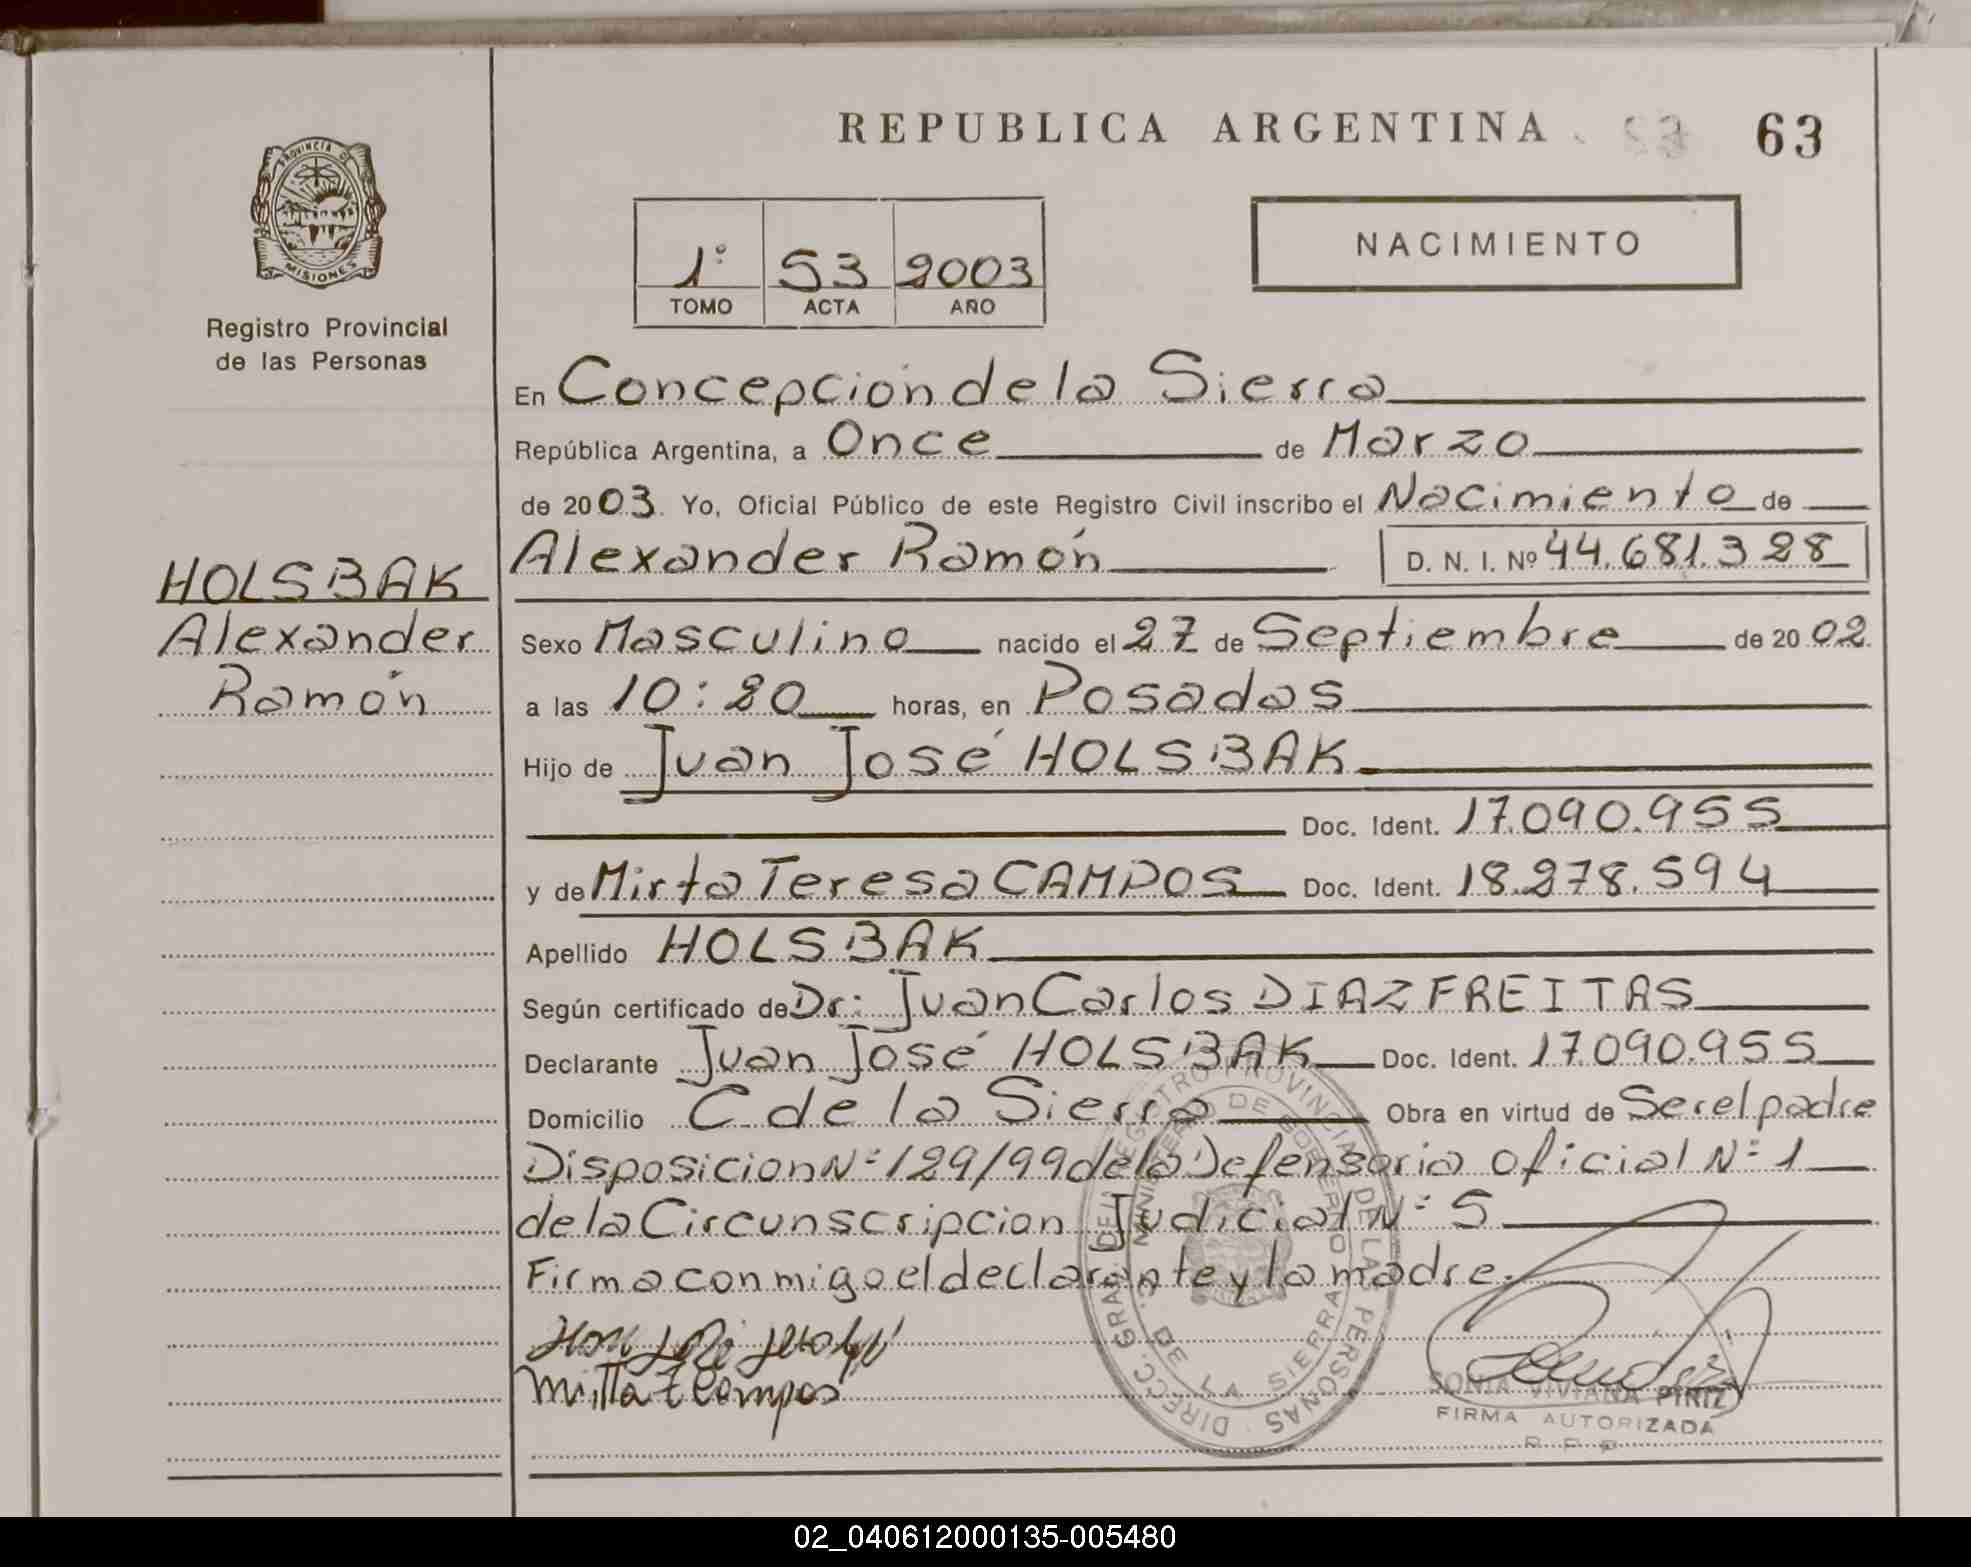 REPUBLICA ARGENTINA 63
PROVINCIA DE
MISIONES
Registro Provincial
de las Personas
1º 53 2003
TOMO ACTA AÑO
NACIMIENTO
En Concepción de la Sierra
República Argentina, a Once de Marzo
de 2003. Yo, Oficial Público de este Registro Civil inscribo el Nacimiento de
Alexander Ramón D. N. I. Nº 44.681.328
HOLSBAK
Alexander
Ramón
Sexo Masculino nacido el 27 de Septiembre de 2002.
a las 10:20 horas, en Posadas
Hijo de Juan José HOLSBAK
Doc. Ident. 17.090.955
y de Mirta Teresa CAMPOS Doc. Ident. 18.278.594
Apellido HOLSBAK
Según certificado de Dr: Juan Carlos DIAZ FREITAS
Declarante Juan José HOLSBAK Doc. Ident. 17.090.955
Domicilio C. de la Sierra Obra en virtud de Ser el padre
Disposicion Nº 129/99 de la Defensoria Oficial Nº 1
de la Circunscripcion Judicial Nº 5
Firma conmigo el declarante y la madre.
Mirta T Campos
DIRECC. GRAL. DEL REGISTRO PROVINCIAL DE LAS PERSONAS
MINISTERIO DE GOBIERNO
C. DE LA SIERRA
SONIA VIVIANA PIRIZ
FIRMA AUTORIZADA
R. P. P.
02_040612000135-005480